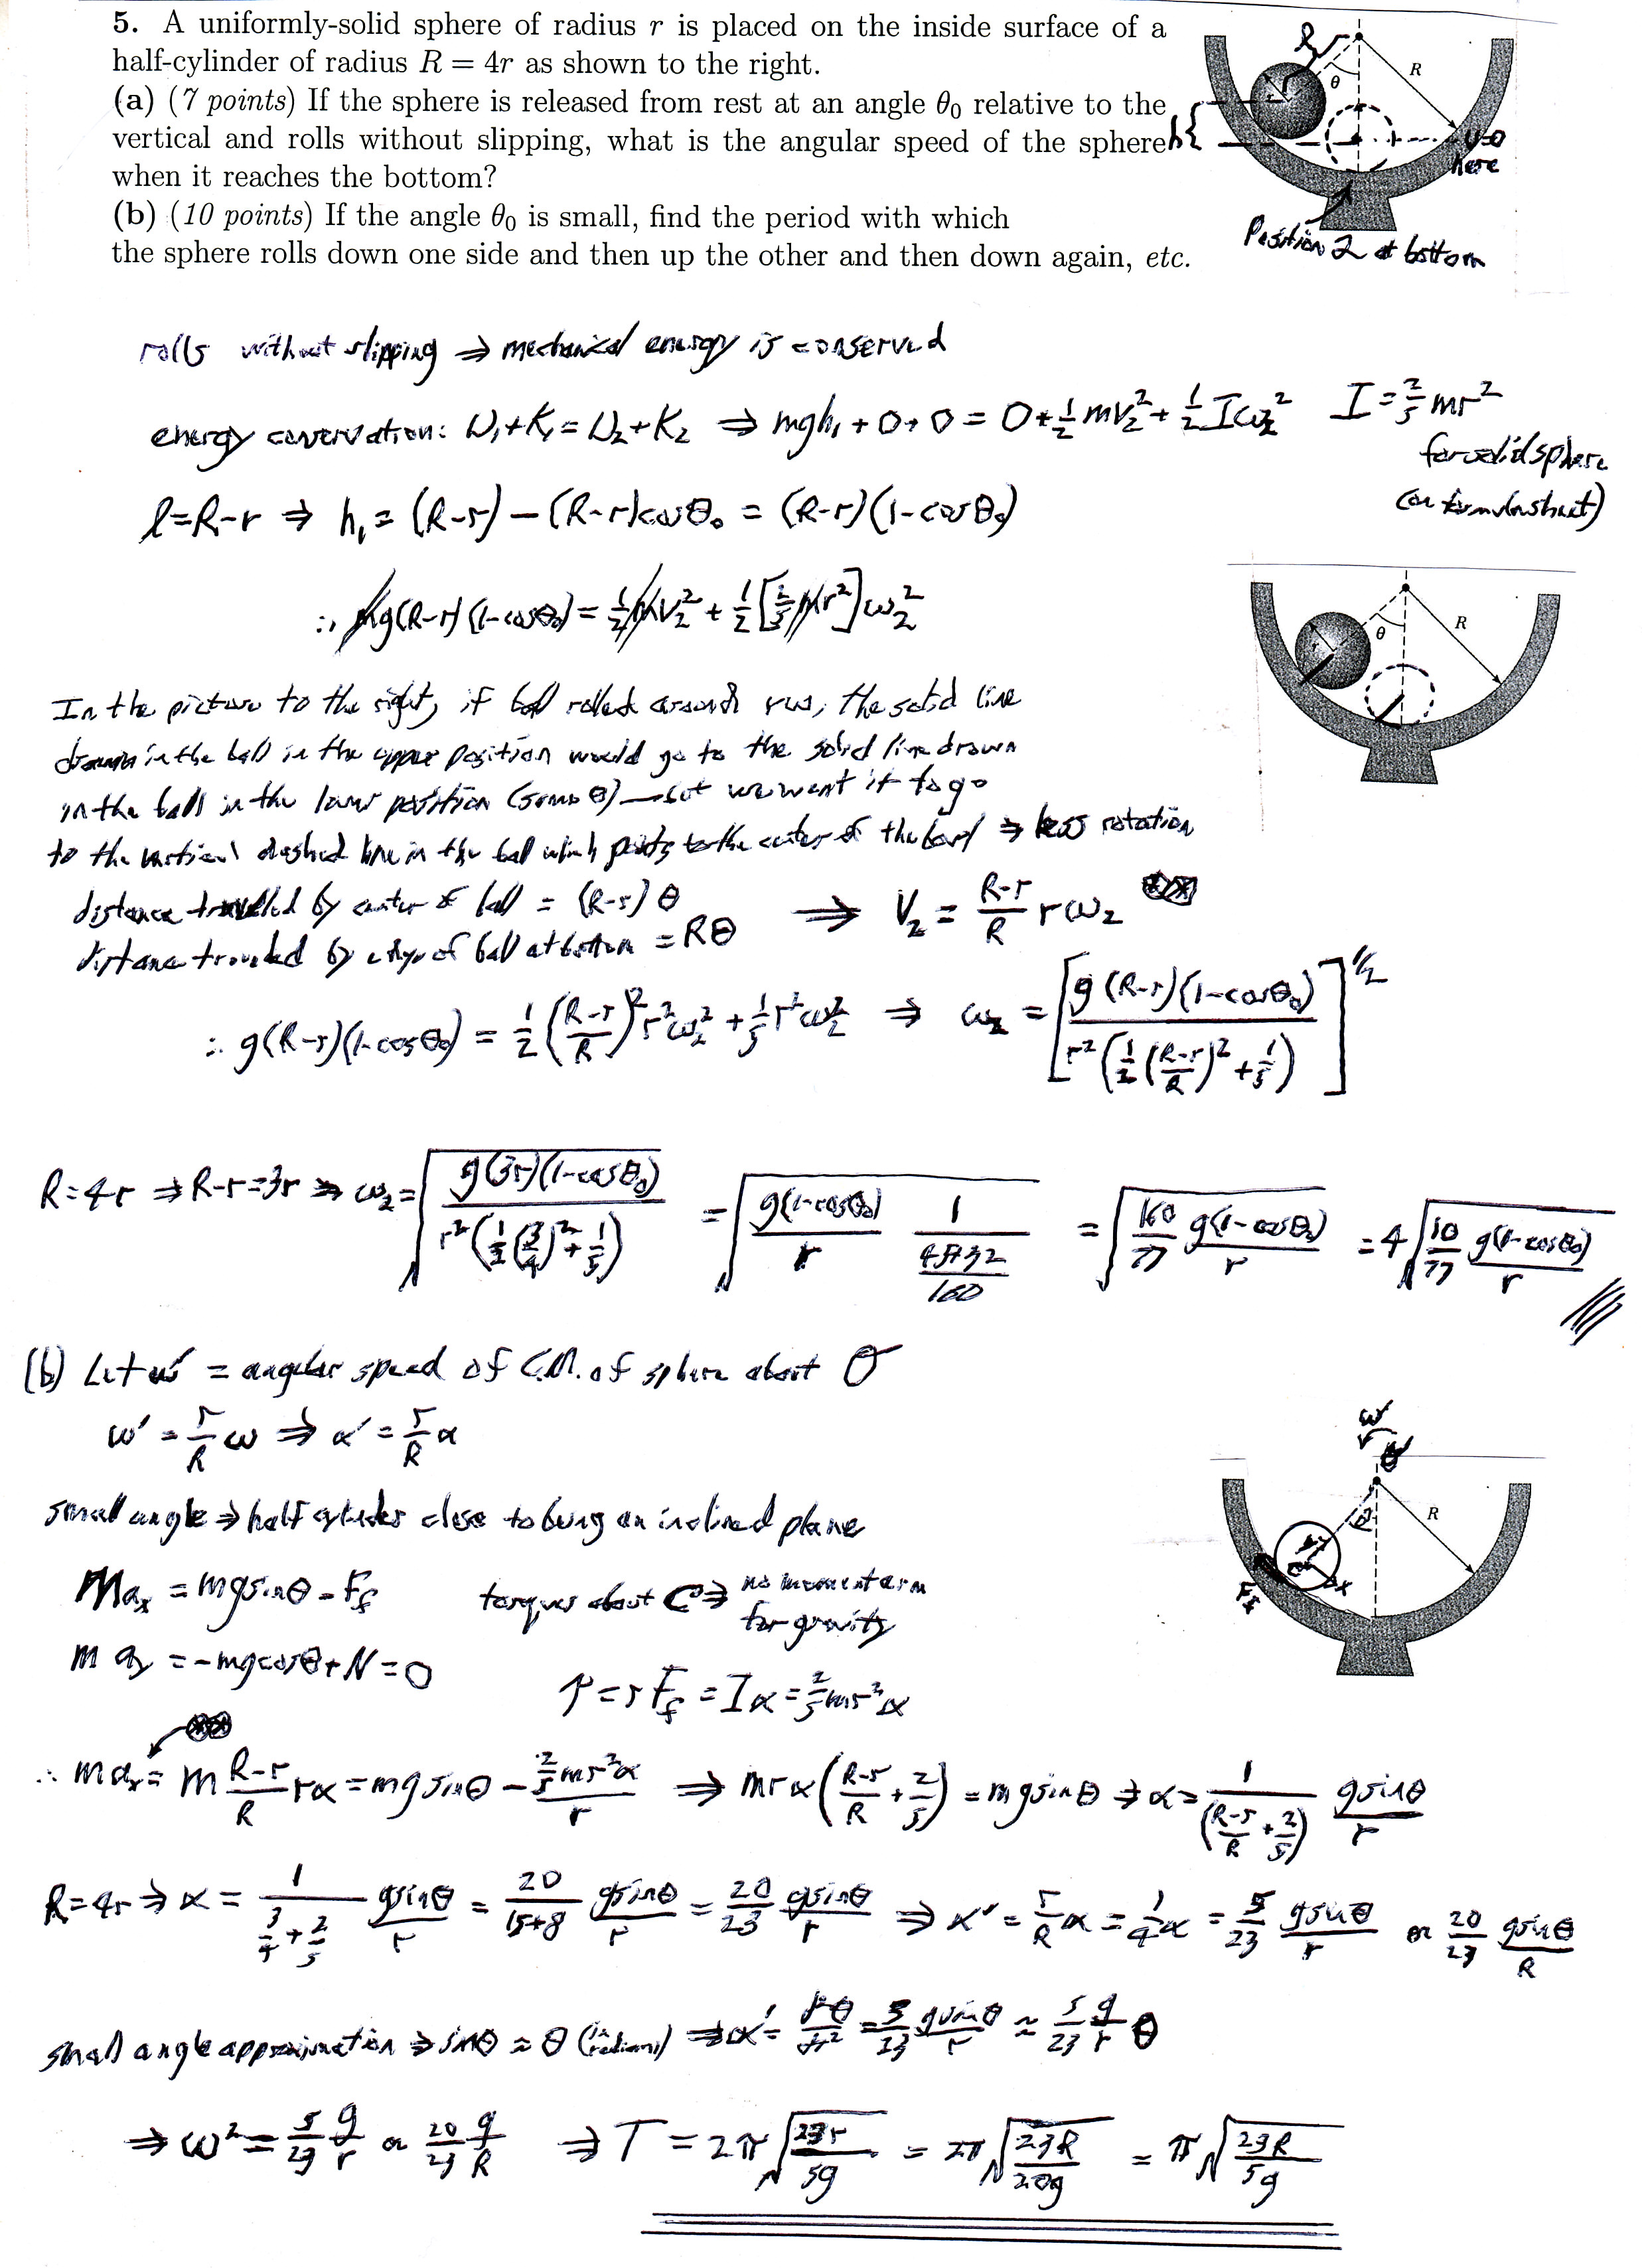 5. A uniformly-solid sphere of radius r is placed on the inside surface of a
half-cylinder of radius R = 4r as shown to the right.
(a) (7 points) If the sphere is released from rest at an angle θ₀ relative to the
vertical and rolls without slipping, what is the angular speed of the sphere
when it reaches the bottom?
(b) (10 points) If the angle θ₀ is small, find the period with which
the sphere rolls down one side and then up the other and then down again, etc.
l
R
θ
r
h{
U=0
here
Position 2 at bottom
rolls without slipping ⇒ mechanical energy is conserved
energy conservation: U₁+K₁=U₂+K₂ ⇒ mgh₁+0+0 = 0+½mv₂²+½Iω₂² I=⅖mr²
for solid sphere
(on formula sheet)
l=R-r ⇒ h₁=(R-r)-(R-r)cosθ₀ = (R-r)(1-cosθ₀)
∴ mg(R-r)(1-cosθ₀) = ½mv₂² + ½[⅖mr²]ω₂²
R
θ
r
In the picture to the right, if ball rolled around rus, the solid line
drawn in the ball in the upper position would go to the solid line drawn
in the ball in the lower position (same θ) — but we want it to go
to the vertical dashed line in the ball which points to the center of the bowl ⇒ less rotation
distance travelled by center of ball = (R-r)θ ⇒ V₂ = (R-r)/R rω₂
distance traveled by edge of ball at bottom = Rθ
∴ g(R-r)(1-cosθ₀) = ½((R-r)/R)²r²ω₂² + ⅕r²ω₂² ⇒ ω₂ = [g(R-r)(1-cosθ₀) / r²(½((R-r)/R)²+⅕)]^½
R=4r ⇒ R-r=3r ⇒ ω₂ = √(g(3r)(1-cosθ₀) / r²(½(¾)²+⅕)) = √(g(1-cosθ₀)/r 1/((45+32)/160)) = √(160/77 g(1-cosθ₀)/r) = 4√(10/77 g(1-cosθ₀)/r)
(b) Let ω' = angular speed of C.M. of sphere about O
ω' = r/R ω ⇒ α' = r/R α
ω'
R
θ
F_f
C
x
small angle ⇒ half cylinder close to being an inclined plane
Ma_x = mgsinθ - F_f torques about C ⇒ no moment arm
for gravity
m a_y = -mgcosθ+N=0
τ = rF_f = Iα = ⅖mr²α
∴ ma_x = m (R-r)/R rα = mgsinθ - ⅖mr²α/r ⇒ mrα((R-r)/R + ⅖) = mgsinθ ⇒ α = 1/((R-r)/R + ⅖) gsinθ/r
R=4r ⇒ α = 1/(¾+⅖) gsinθ/r = 20/(15+8) gsinθ/r = 20/23 gsinθ/r ⇒ α' = r/R α = ¼α = 5/23 gsinθ/r or 20/23 gsinθ/R
small angle approximation ⇒ sinθ ≈ θ (in radians) ⇒ α' = d²θ/dt² = 5/23 gsinθ/r ≈ 5/23 g/r θ
⇒ ω² = 5/23 g/r or 20/23 g/R ⇒ T = 2π√(23r/5g) = 2π√(23R/20g) = π√(23R/5g)